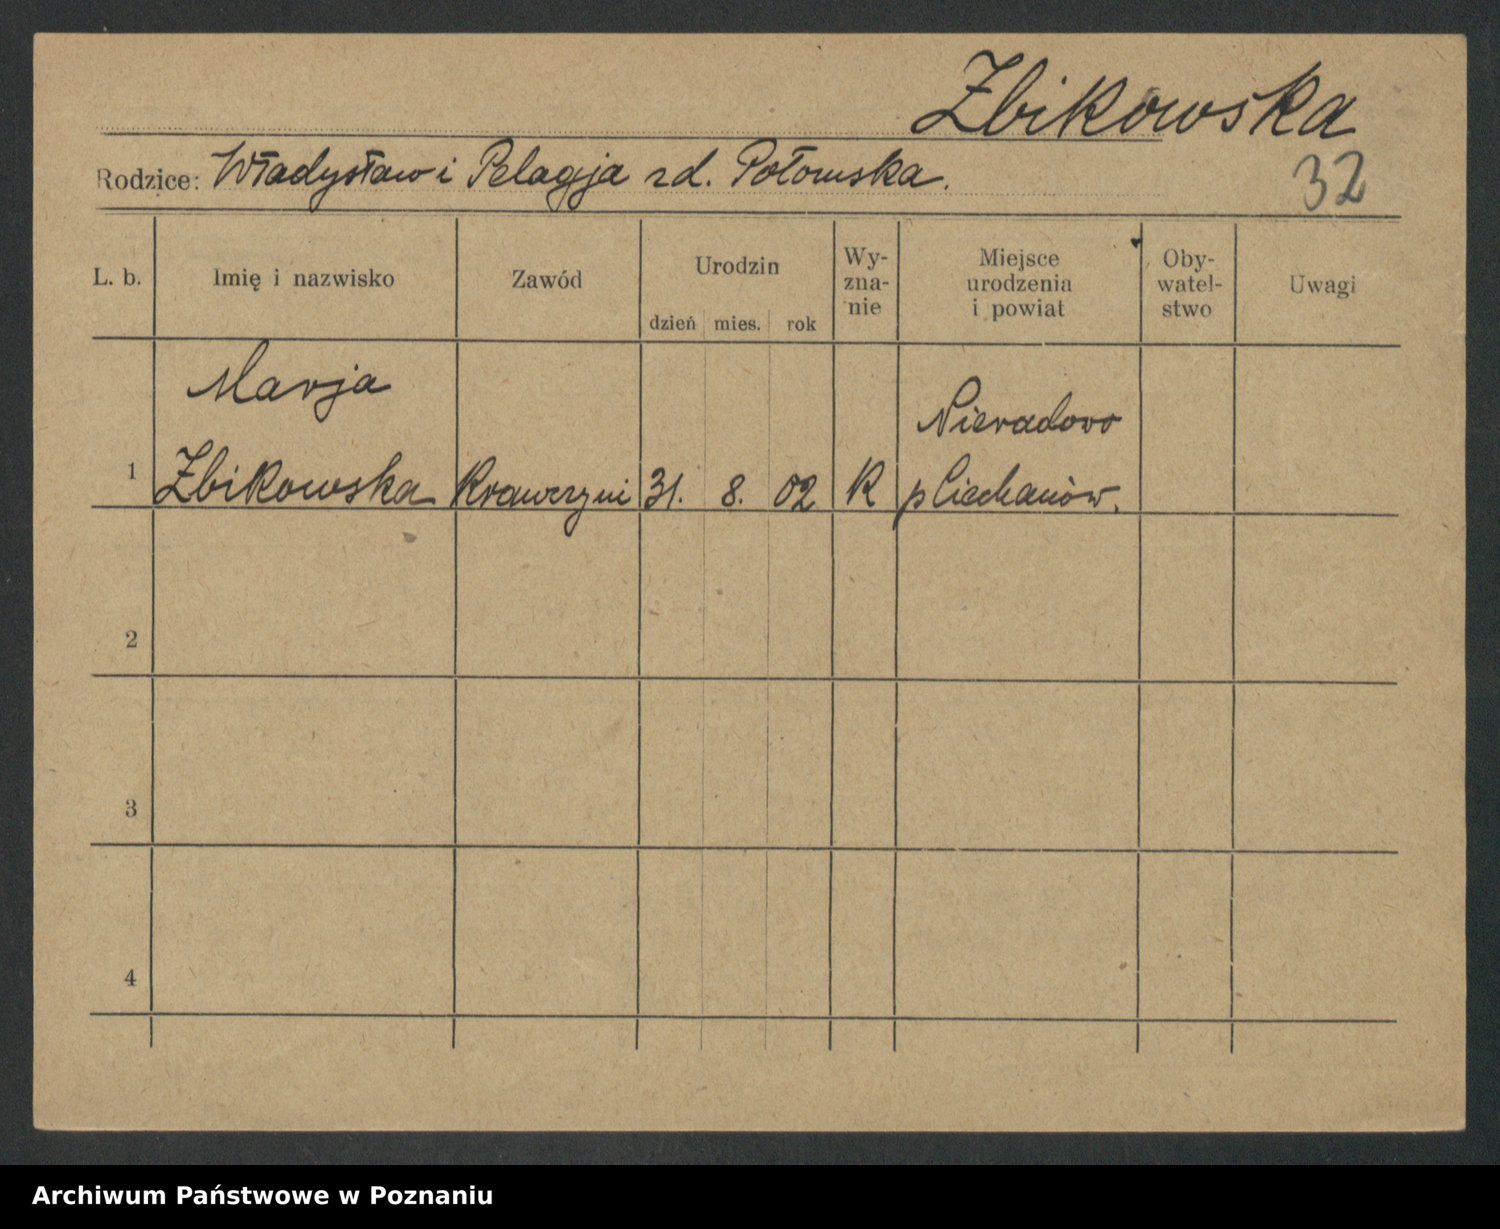 Zbikowska
Rodzice: Władysław i Pelagja zd. Połomska.
32
L. b.
Imię i nazwisko
Zawód
Urodzin
dzień mies. rok
Wy-
zna-
nie
Miejsce
urodzenia
i powiat
Oby-
watel-
stwo
Uwagi
Marja
Nieradovo
1 Zbikowska Krawczyni 31. 8. 02 K p Ciechanów.
2
3
4
Archiwum Państwowe w Poznaniu